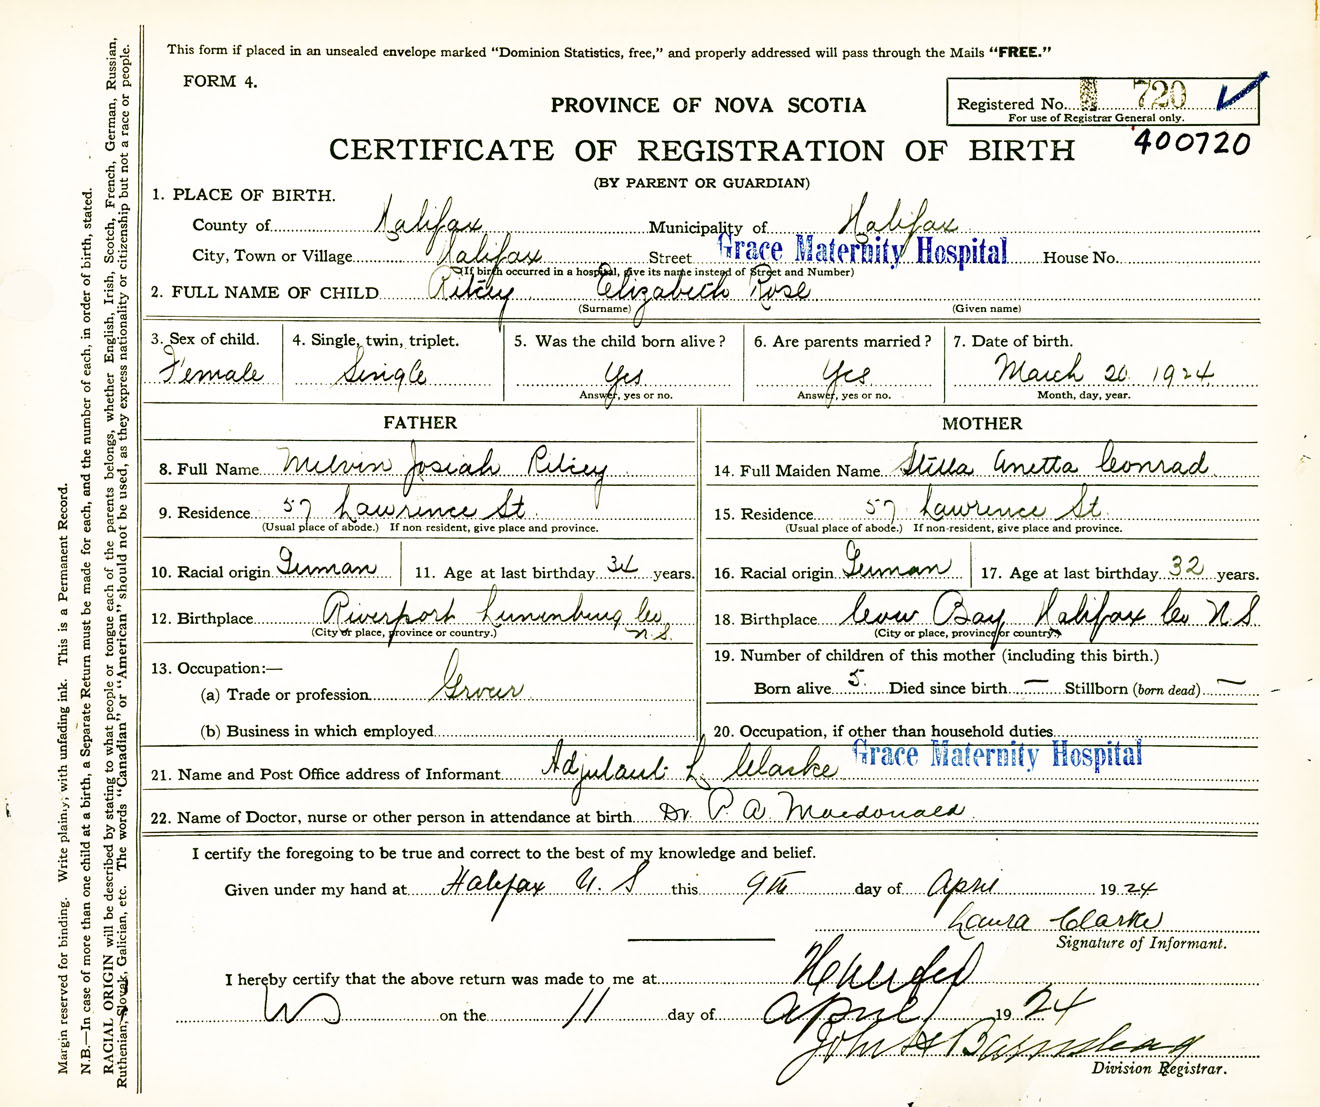 This form if placed in an unsealed envelope marked "Dominion Statistics, free," and properly addressed will pass through the Mails "FREE."
FORM 4.
Registered No. 720
For use of Registrar General only.
PROVINCE OF NOVA SCOTIA
400720
CERTIFICATE OF REGISTRATION OF BIRTH
(BY PARENT OR GUARDIAN)
1. PLACE OF BIRTH.
County of Halifax Municipality of Halifax
City, Town or Village Halifax Street Grace Maternity Hospital House No.
(If birth occurred in a hospital, give its name instead of Street and Number)
2. FULL NAME OF CHILD Ritcey Elizabeth Rose
(Surname) (Given name)
3. Sex of child. 4. Single, twin, triplet. 5. Was the child born alive? 6. Are parents married? 7. Date of birth.
Female Single Yes Yes March 20 1924
Answer, yes or no. Answer, yes or no. Month, day, year.
FATHER MOTHER
8. Full Name Melvin Josiah Ritcey 14. Full Maiden Name Stella Anetta Conrad
9. Residence 57 Lawrence St. 15. Residence 57 Lawrence St.
(Usual place of abode.) If non resident, give place and province. (Usual place of abode.) If non-resident, give place and province.
10. Racial origin German 11. Age at last birthday 34 years. 16. Racial origin German 17. Age at last birthday 32 years.
12. Birthplace Riverport Lunenburg Co N.S. 18. Birthplace Cow Bay Halifax Co N.S.
(City or place, province or country.) (City or place, province or country.)
13. Occupation:— 19. Number of children of this mother (including this birth.)
(a) Trade or profession Grocer Born alive 5 Died since birth — Stillborn (born dead) —
(b) Business in which employed 20. Occupation, if other than household duties
21. Name and Post Office address of Informant Adjutant L. Clarke Grace Maternity Hospital
22. Name of Doctor, nurse or other person in attendance at birth Dr. P. A. Macdonald
I certify the foregoing to be true and correct to the best of my knowledge and belief.
Given under my hand at Halifax N.S this 9th day of April 1924
Laura Clarke
Signature of Informant.
I hereby certify that the above return was made to me at Halifax
NS on the 11 day of April 1924
John H
Division Registrar.
Margin reserved for binding. Write plainly, with unfading ink. This is a Permanent Record.
N.B.—In case of more than one child at a birth, a Separate Return must be made for each, and the number of each, in order of birth, stated.
RACIAL ORIGIN will be described by stating to what people or tongue each of the parents belongs, whether English, Irish, Scotch, French, German, Russian,
Ruthenian, Slovak, Galician, etc. The words "Canadian" or "American" should not be used, as they express nationality or citizenship but not a race or people.